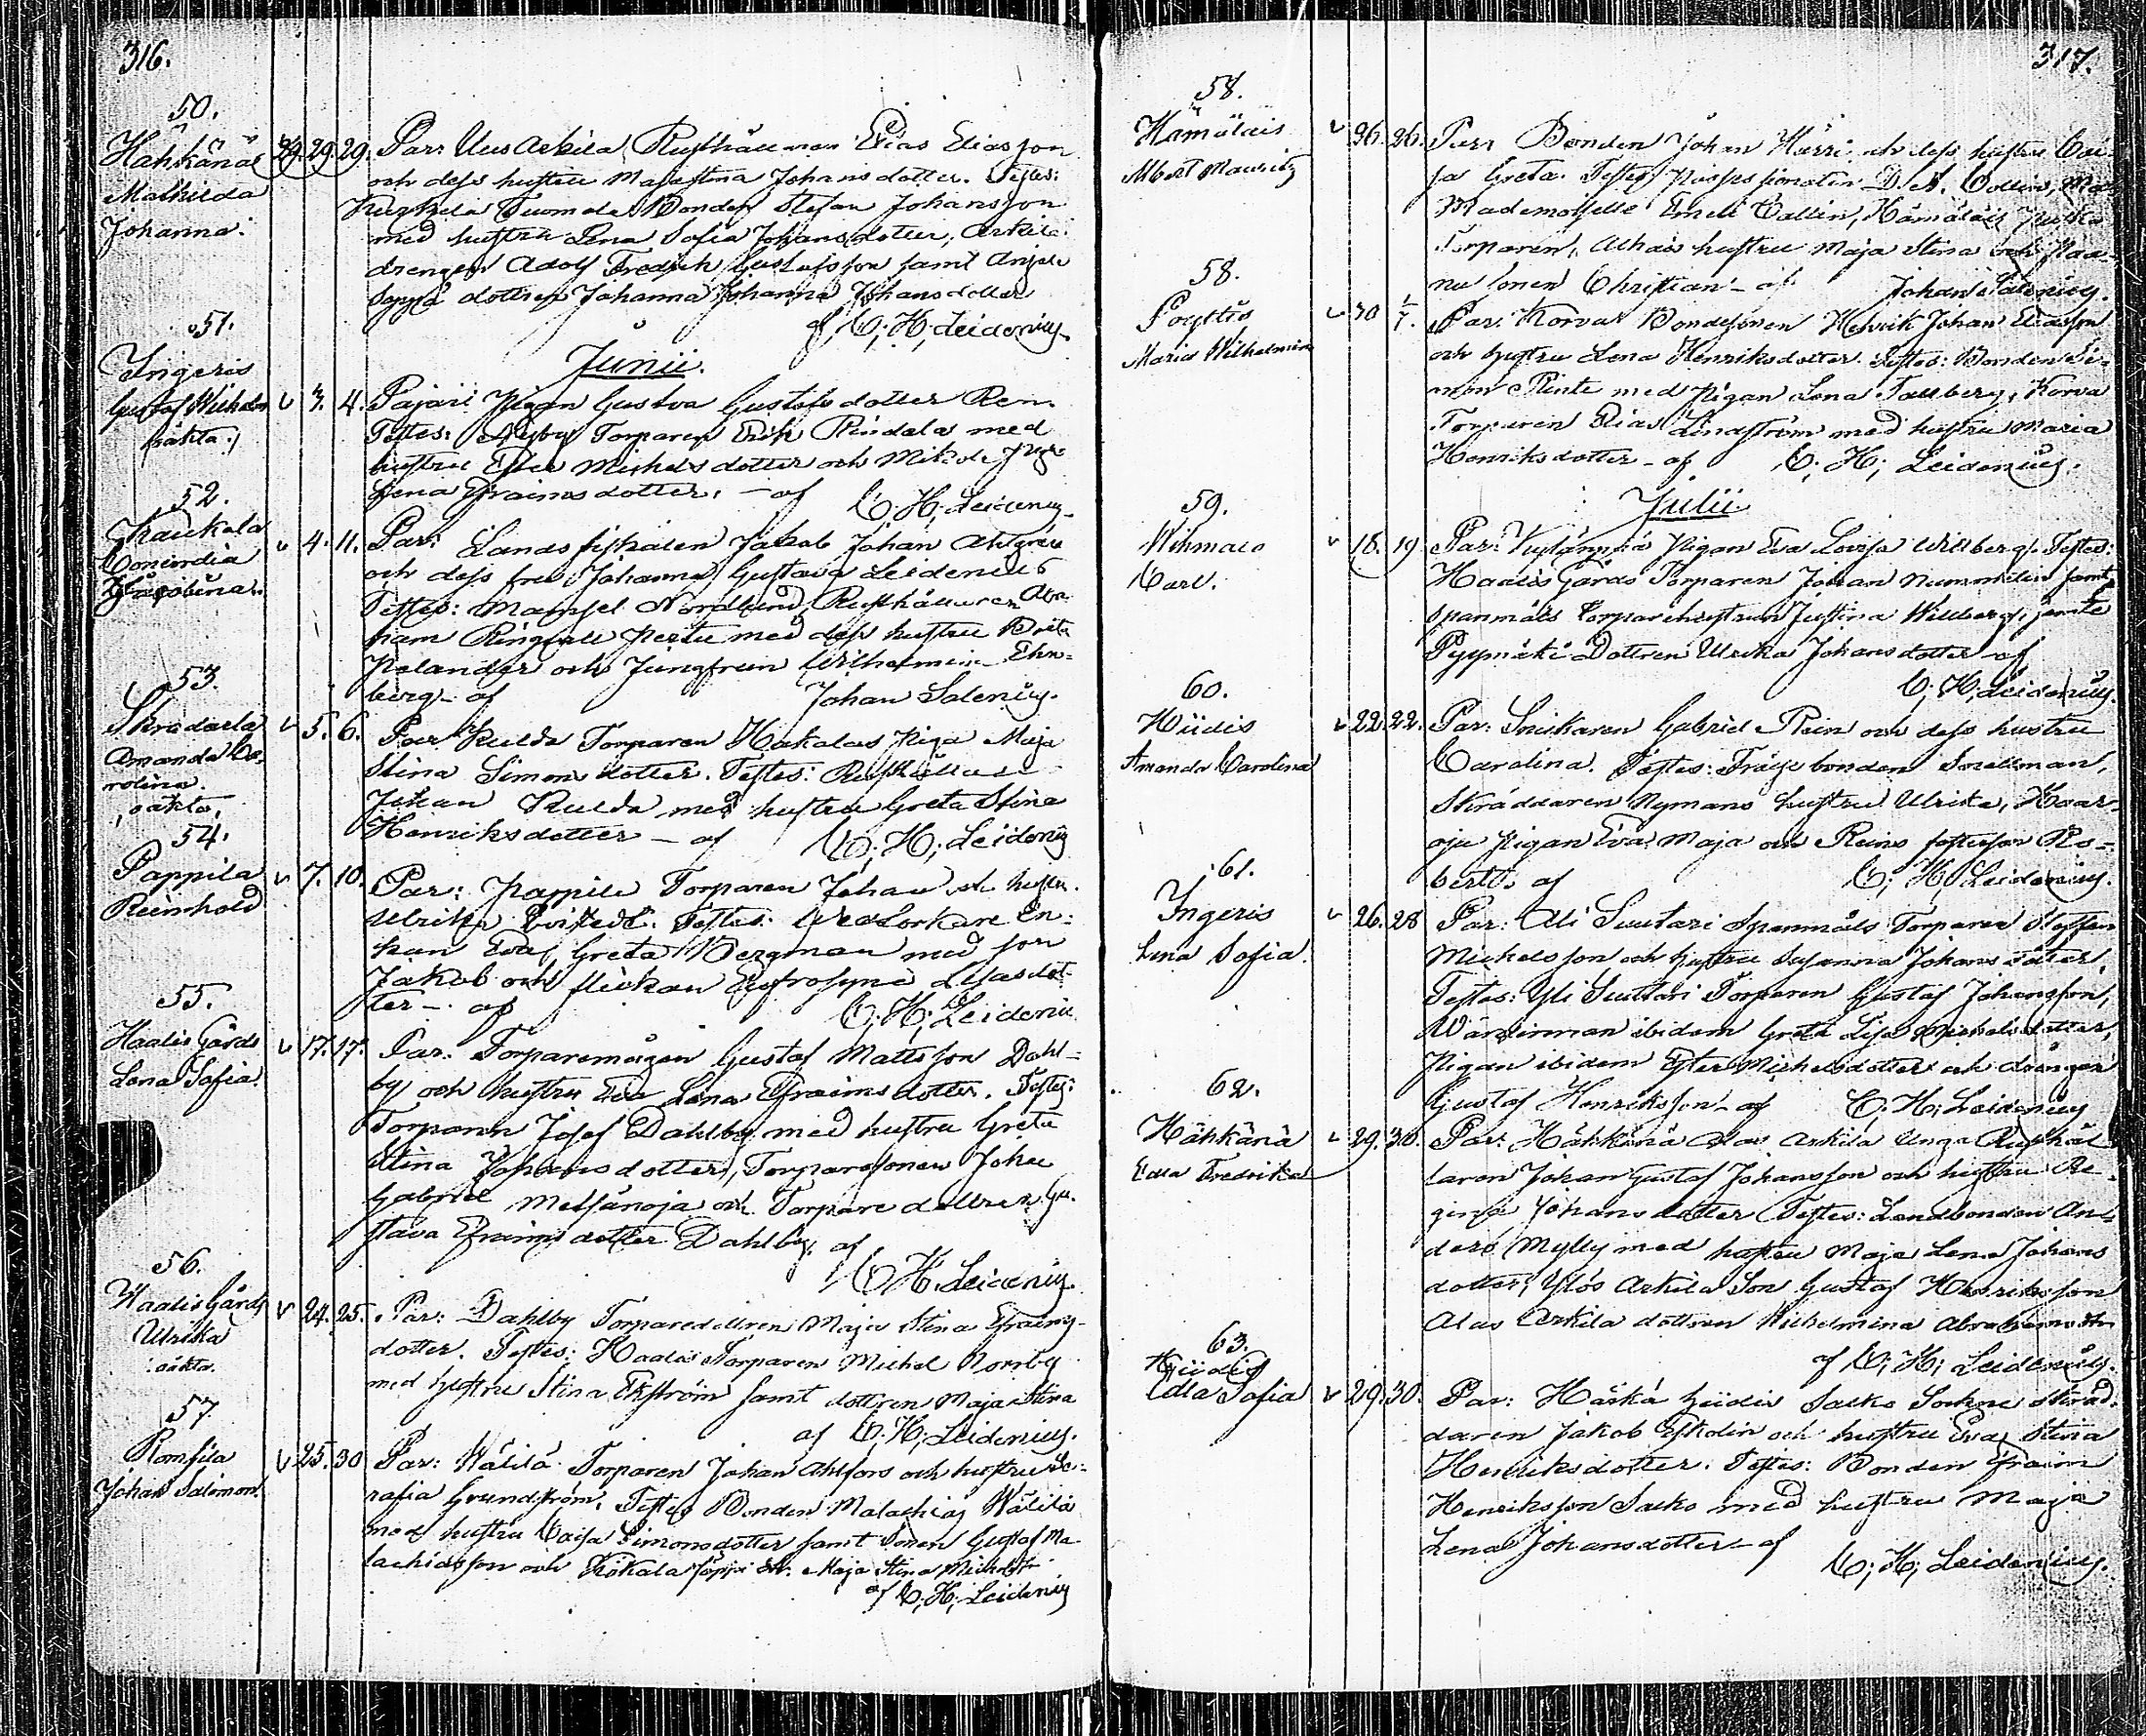 316.
50.
Hahkänä 29. 29. 29. Par: Uus Arkila Rusthållaren Elias Eliasson
Mathilda och dess hustru Maja Stina Johansdotter. Testes:
Johanna. Tuomola Bonden Stefan Johansson
med hustru Lena Sofia Johansdotter, Arkila
drengen Adolf Fredrik Gustafsson samt
dottren Johanna Johansdotter
af C; H; Leidenius
Junii.
51.
Ingeris
Gustaf Wilhelm 3. 4. Pajari Pigan Gustva Gustafsdotter Ren.
oäkta Testes: Torparen Erik Rindala med
hustru Ester Michelsdotter och
Lena Efraimsdotter. – af C; H; Leidenius
52.
Kaukola 4. 11. Par: Landsfiskalen Jakob Johan Ahlgrén
Concordia och dess fru Johanna Gustava Leidenius
Testes: Mamsel Nordlund, Rusthållaren Abra
ham Ringvall Perttu med dess hustru
Pelander och Jungfrun Wilhelmina Ehn-
berg – af Johan Salenius.
53.
Skradarla 5. 6. Par Kulda Torparen Hakalas Piga Maja
Amanda Ca- Stina Simonsdotter. Testes:
rolina. Johan Kulda med hustru Greta Stina
oäkta Henriksdotter – af C; H; Leidenius
54.
Pappila 7. 10. Par: Pappila Torparen Johan och hustru
Reinhold Ulrika Testes: En-
kan Eva Greta Bergman med son
Jakob och flickan Eufrosyne
ter – af C; H; Leidenius
55.
Haalis Gårds 17. 17. Par: Torparemågen Gustaf Mattsson Dahl-
Lena Sofia. by och hustru Eva Lena Efraimsdotter. Testes:
Torparen Josef Dahlby med hustru Greta
Stina Johansdotter, Torparesonen Johan
Gabriel Metsänoja och Torpare dottren Gu-
stava Efraimsdotter Dahlby, af
C; H; Leidenius
56.
Haalis Gårds 24. 25. Par: Dahlby Torparedottren Maja Stina Efraims-
Ulrika dotter. Testes: Haalis Torparen Michel Norrby
oäkta. med hustru Stina Ekström samt dottren Maja Stina
af C; H; Leidenius.
57.
Romsila 25. 30 Par: Wälilä Torparen Johan Ahlfors och hustru Se-
Johan Salomon. rafia Grundström. Testes Bonden Malachias Wälilä
med hustru Caisa Simonsdotter samt sonen Gustaf Ma-
lachiasson och Kokala Maja Stina
af C; H; Leidenius
317.
58.
Hämäläis 26. 26. Par Bonden Johan Härri och dess hustru Cai-
Albert Mauritz sa Greta. Testes Possessionaten D. A. Collin,
Mademoiselle Emeli Collin, Hämäläis
Torparen, hustru Maja Stina och
nu sonen Christian – af Johan Salenius.
58.
Poyttis 30 1/7. Par: Korva Bondesonen Henrik Johan Eliasson
Maria Wilhelmina och hustru Lena Henriksdotter. Testes: Bonden Si-
mon Rinte med Pigan Lena Tallberg, Korva
Torparen Elias Lindström med hustru Maria
Henriksdotter – af C; H; Leidenius.
Julii
59.
Wihmalo 18. 19 Par: Pigan Eva Lovisa Willberg. Testes:
Carl. Haalis Gårds Torparen Johan Nummelin samt
spanmåls torparehustrun Justina Willberg, jemte
Dottren Ulrika Johansdotter – af
C; H; Leidenius.
60.
Hiidis 22. 22. Par: Snickaren Gabriel Rein och dess hustru
Amanda Carolina Carolina. Testes: Frälsebonden Snellman,
Skräddaren Nymans hustru Ulrika, Haar-
oja Pigan Eva Maja och Reins fosterson Ro-
bert. af C; H; Leidenius.
61.
Ingeris 26. 28 Par: Ali Suutari Spanmåls Torparen Staffan
Lena Sofia. Michelsson och hustru Susanna Johansdotter,
Testes: Yli Suutari Torparen Gustaf Johansson,
Wärdinnan ibidem Greta Lisa Michelsdotter,
Pigan ibidem Ester Michelsdotter och drängen
Gustaf Henriksson – af C; H; Leidenius
62.
Hähkänä 29. 30. Par: Hähkänä Alas Arkila Unga Rusthål
Edla Fredrika laren Johan Gustaf Johansson och hustru Re-
gina Johansdotter Testes: Landbonden An-
ders Mylly med hustru Maja Lena Johans
dotter, Ylös Arkila Son Gustaf Henriksson
Alas Arkila dottren Wilhelmina
af C; H; Leidenius.
63.
Hiidis
Edla Sofia 29. 30. Par: Härkä Hiidis Salko Sockne Skräd-
daren Jakob Eskolin och hustru Eva Stina
Henriksdotter. Testes: Bonden Efraim
Henriksson Salko med hustru Maja
Lena Johansdotter – af C; H; Leidenius.